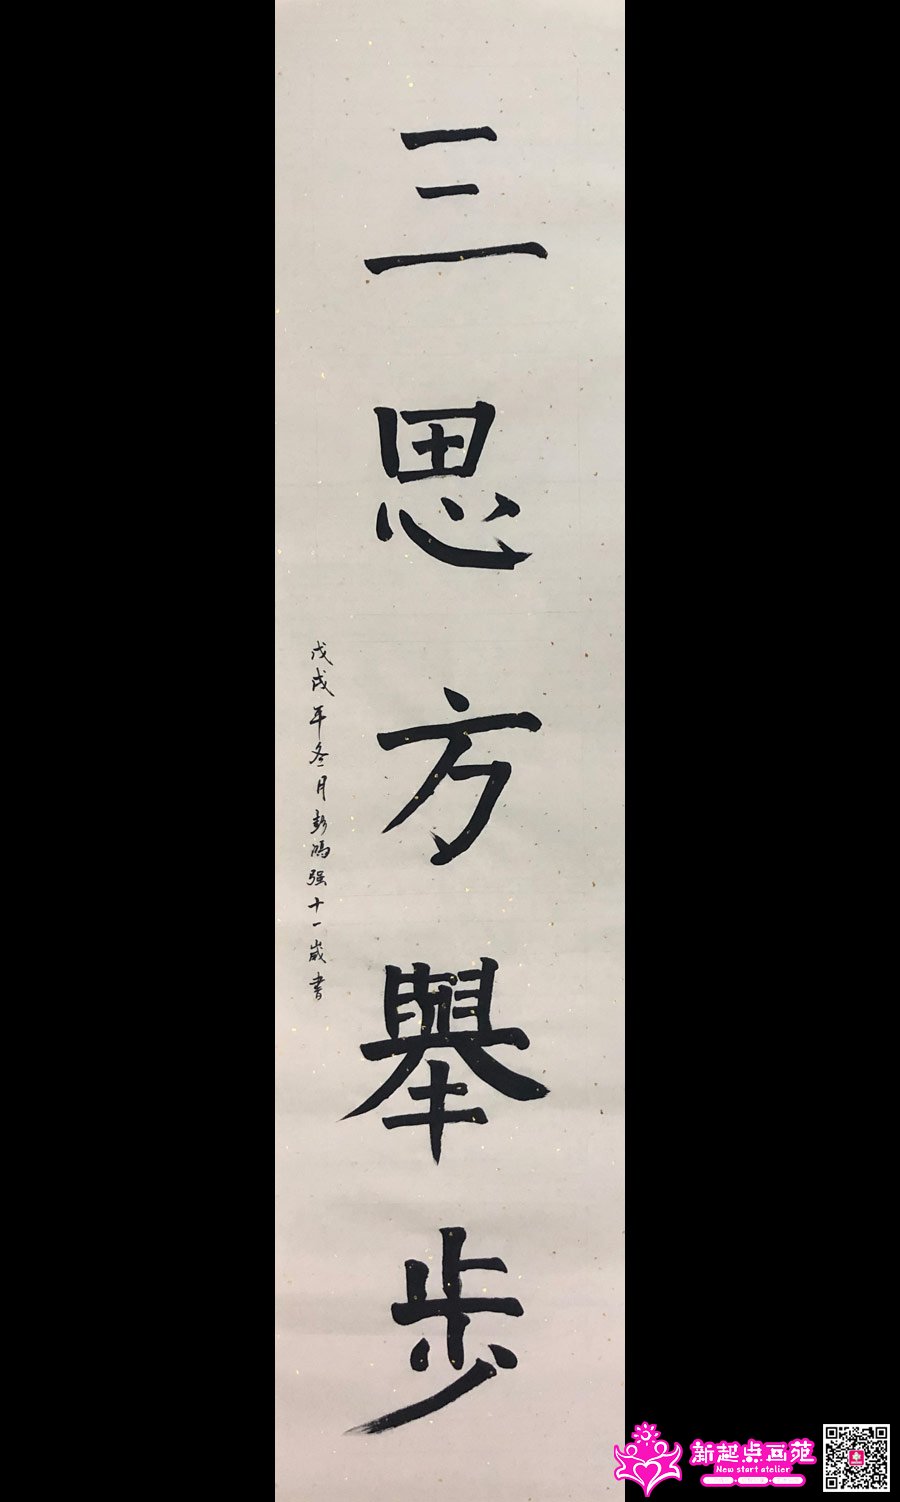 三思方舉步
戊戌年冬月彭鴻强十一歲書
新起点画苑
New start atelier